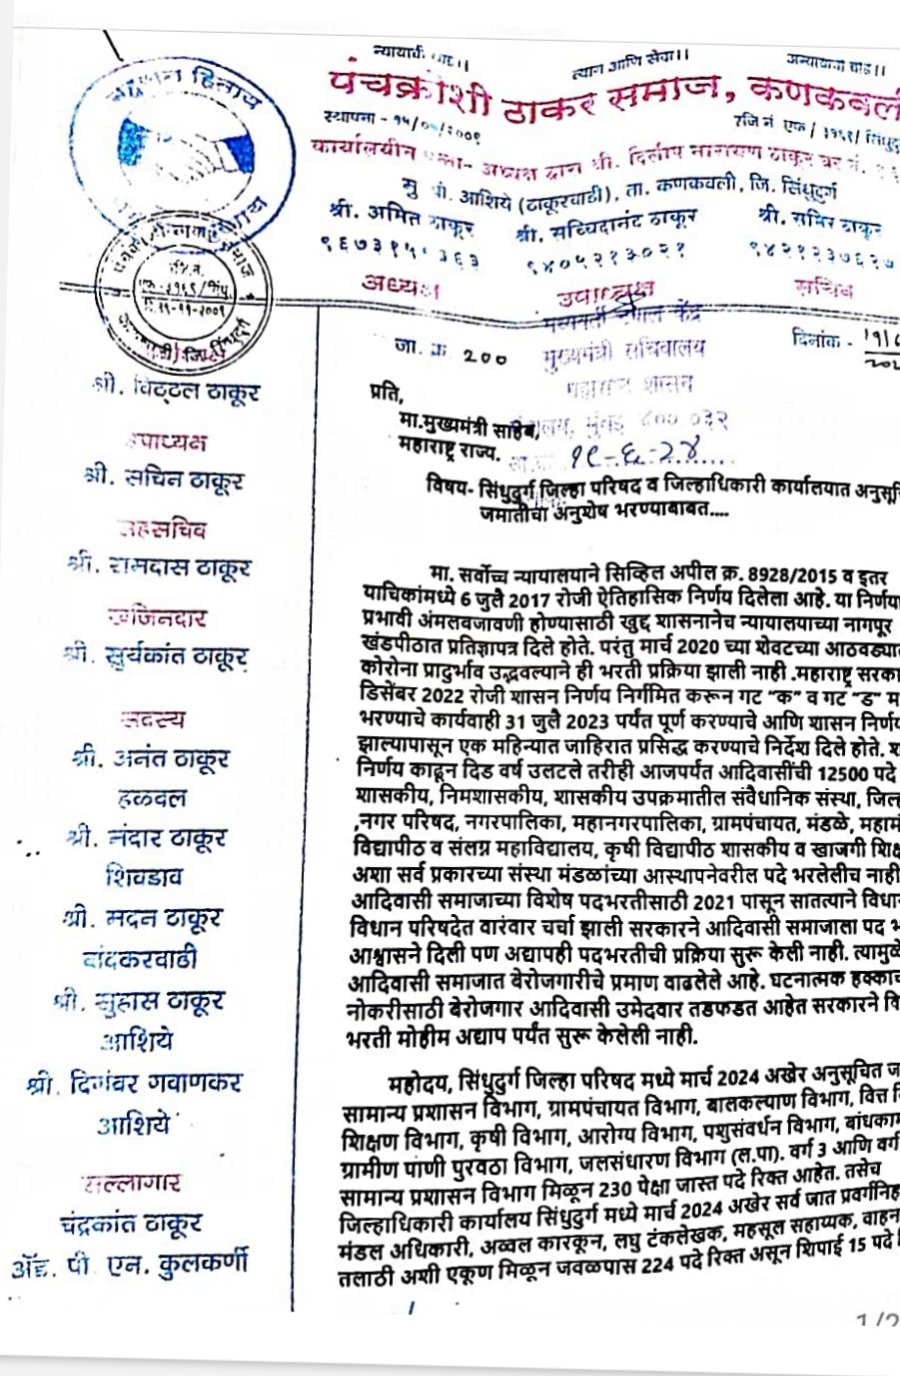 त्याग आणि सेवा।।
पंचक्रोशी ठाकर समाज, कणकवली
स्थापना -
कार्यालयीन पत्ता- अध्यक्ष द्वारा श्री. दिलीप नारायण ठाकूर घर नं.
मु पो. आशिये (ठाकूरवाडी), ता. कणकवली, जि. सिंधुदुर्ग
श्री. अमित ठाकूर
श्री. सच्चिदानंद ठाकूर
श्री. समिर ठाकूर
९४०५२१३०२१
९४२१२३७६२७
अध्यक्ष
उपाध्यक्ष
सचिव
मुख्यमंत्री सचिवालय
महाराष्ट्र शासन
मुंबई ४०० ०३२
१९-६-२४
जा. क्र २००
दिनांक -
श्री. विठ्ठल ठाकूर
उपाध्यक्ष
श्री. सचिन ठाकूर
सहसचिव
श्री. रामदास ठाकूर
खजिनदार
श्री. सुर्यकांत ठाकूर
सदस्य
श्री. अनंत ठाकूर
हळवल
श्री. मंदार ठाकूर
शिवडाव
श्री. मदन ठाकूर
श्री. सुहास ठाकूर
आशिये
श्री. दिगंबर गवाणकर
आशिये
सल्लागार
चंद्रकांत ठाकूर
ॲड. पी. एन. कुलकर्णी
प्रति,
मा.मुख्यमंत्री साहेब,
महाराष्ट्र राज्य.
विषय- सिंधुदुर्ग जिल्हा परिषद व जिल्हाधिकारी कार्यालयात
जमातीचा अनुशेष भरण्याबाबत....
मा. सर्वोच्च न्यायालयाने सिव्हिल अपील क्र. 8928/2015 व इतर
याचिकांमध्ये 6 जुलै 2017 रोजी ऐतिहासिक निर्णय दिलेला आहे. या
प्रभावी अंमलबजावणी होण्यासाठी खुद्द शासनानेच न्यायालयाच्या नागपूर
खंडपीठात प्रतिज्ञापत्र दिले होते. परंतु मार्च 2020 च्या शेवटच्या
कोरोना प्रादुर्भाव उद्भवल्याने ही भरती प्रक्रिया झाली नाही .महाराष्ट्र
डिसेंबर 2022 रोजी शासन निर्णय निर्गमित करून गट “क” व गट “ड”
भरण्याचे कार्यवाही 31 जुलै 2023 पर्यंत पूर्ण करण्याचे आणि शासन
झाल्यापासून एक महिन्यात जाहिरात प्रसिद्ध करण्याचे निर्देश दिले होते.
निर्णय काढून दिड वर्ष उलटले तरीही आजपर्यंत आदिवासींची 12500 पदे
शासकीय, निमशासकीय, शासकीय उपक्रमातील संवैधानिक संस्था,
,नगर परिषद, नगरपालिका, महानगरपालिका, ग्रामपंचायत, मंडळे,
विद्यापीठ व संलग्न महाविद्यालय, कृषी विद्यापीठ शासकीय व खाजगी
अशा सर्व प्रकारच्या संस्था मंडळांच्या आस्थापनेवरील पदे भरलेलीच नाही
आदिवासी समाजाच्या विशेष पदभरतीसाठी 2021 पासून सातत्याने
विधान परिषदेत वारंवार चर्चा झाली सरकारने आदिवासी समाजाला पद
आश्वासने दिली पण अद्यापही पदभरतीची प्रक्रिया सुरू केली नाही.
आदिवासी समाजात बेरोजगारीचे प्रमाण वाढलेले आहे. घटनात्मक
नोकरीसाठी बेरोजगार आदिवासी उमेदवार तडफडत आहेत सरकारने
भरती मोहीम अद्याप पर्यंत सुरू केलेली नाही.
महोदय, सिंधुदुर्ग जिल्हा परिषद मध्ये मार्च 2024 अखेर अनुसूचित
सामान्य प्रशासन विभाग, ग्रामपंचायत विभाग, बालकल्याण विभाग, वित्त
शिक्षण विभाग, कृषी विभाग, आरोग्य विभाग, पशुसंवर्धन विभाग,
ग्रामीण पाणी पुरवठा विभाग, जलसंधारण विभाग (ल.पा). वर्ग 3 आणि वर्ग
सामान्य प्रशासन विभाग मिळून 230 पेक्षा जास्त पदे रिक्त आहेत. तसेच
जिल्हाधिकारी कार्यालय सिंधुदुर्ग मध्ये मार्च 2024 अखेर सर्व जात
मंडल अधिकारी, अव्वल कारकून, लघु टंकलेखक, महसूल सहाय्यक,
तलाठी अशी एकूण मिळून जवळपास 224 पदे रिक्त असून शिपाई 15 पदे